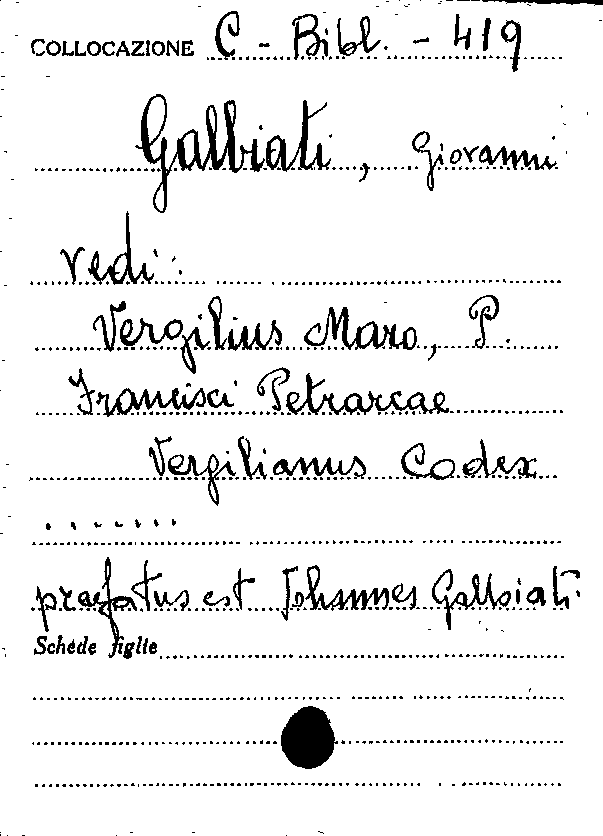 COLLOCAZIONE C - Bibl. - 419
Galbiati, Giovanni
vedi:
Vergilius Maro, P.
Francisci Petrarcae
Vergilianus Codex
.......
praefatus est Johannes Galbiati.
Schede figlie